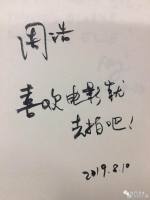 周浩
喜欢电影就
去拍吧！
2019.8.10